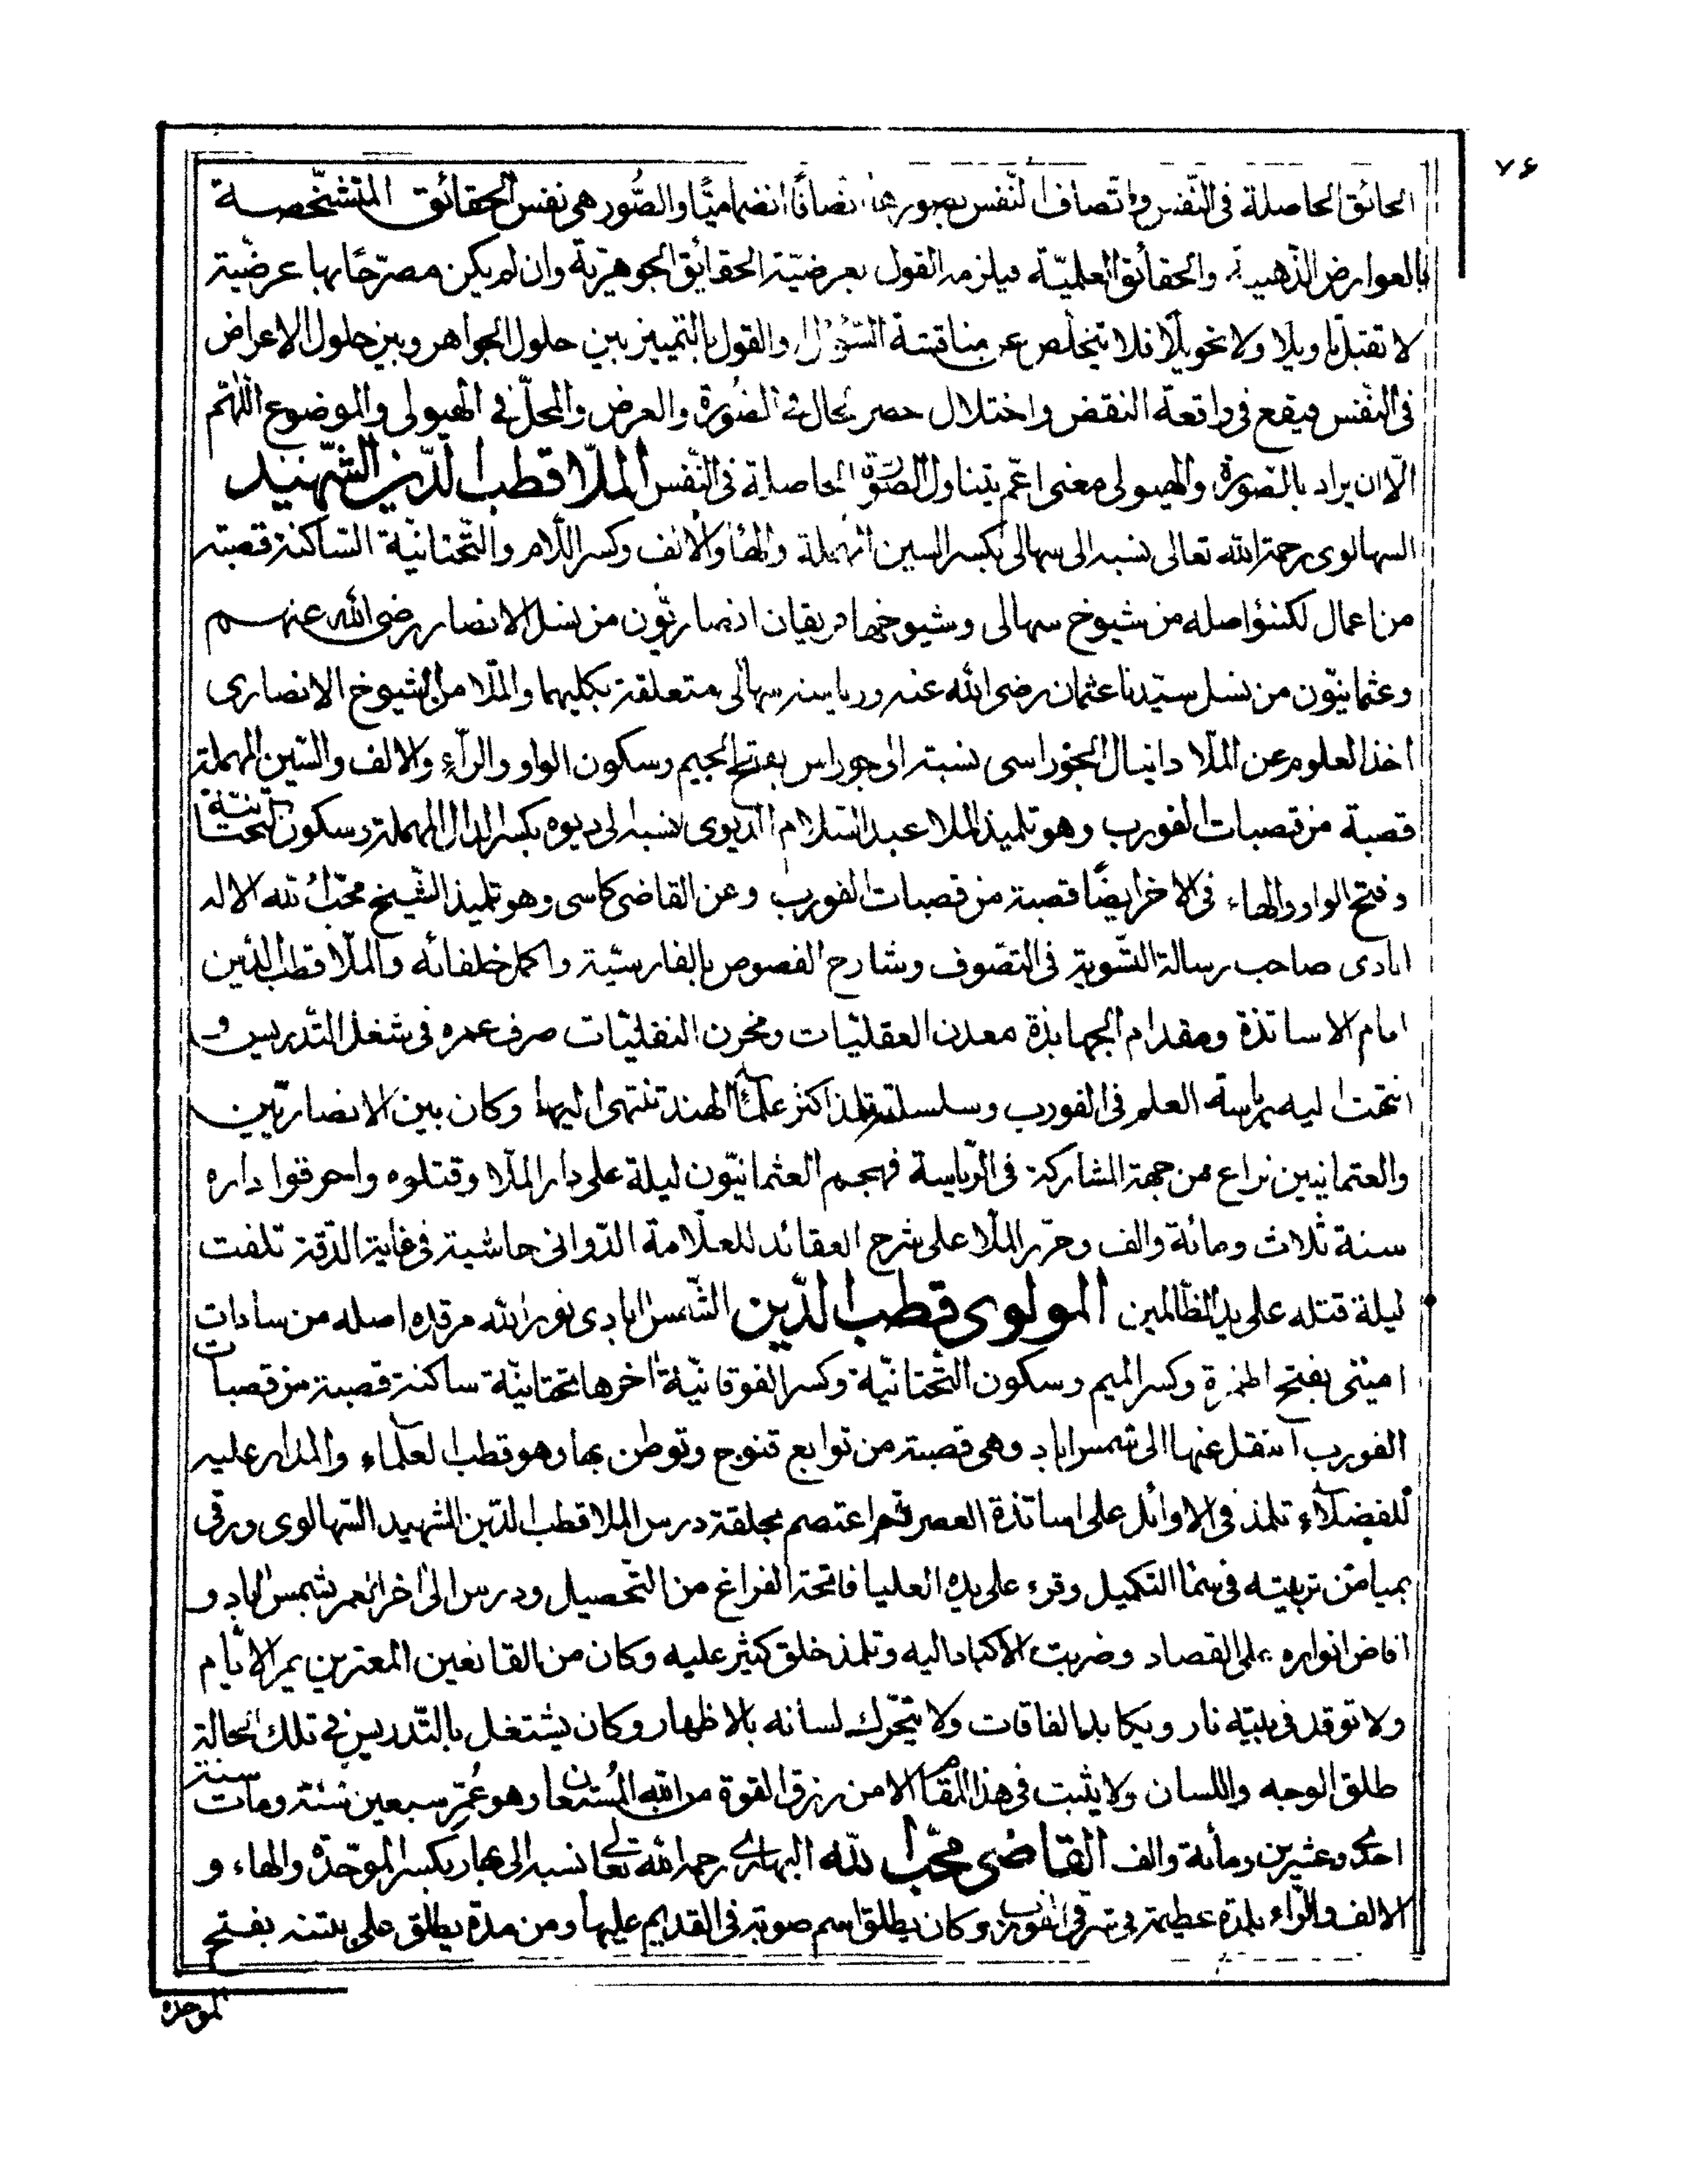 ٧٦
الحائق الحاصلة فى النّفس واتّصاف النّفس بصورها اتصافًا انضماميًّا والصُّور هى نفس الحقائق المتشخّصة
بالعوارض الذهنية والحقائق العلميّة فيلزمه القول بعرضيّة الحقائق الجوهريّة وان لم يكن مصرّحًا بها عرضيّة
لا تقبل تاويلا ولا تحويلًا فلا يتخلّص عن مناقشة السّؤال والقول بالتمييز بين حلول الجواهر وبين حلول الاعراض
فى النّفس فيقع فى واقعة النقض واختلال حصر الحال فى الصّورة والعرض والمحلّ فى الهيولى والموضوع اللّٰهمّ
الّا ان يراد بالصّورة والهيولى معنى اعمّ يتناول الصّورة الحاصلة فى النّفس الملّا قطب الدّين الشّهيد
السهالوى رحمة الله تعالى نسبه الى سهالى بكسر السين المهملة والهاء والالف وكسر اللّام والتّحتانيّة السّاكنة قصبة
من اعمال لكنؤ اصله من شيوخ سهالى وشيوخها فريقان انصاريّون من نسل الانصار رضى الله عنهم
وعثمانيّون من نسل سيّدنا عثمان رضى الله عنه ورياسة سهالى متعلقة بكليهما والملّا من الشيوخ الانصارى
اخذ العلوم عن الملّا دانيال الجوراسى نسبة الى جوراس بفتح الجيم وسكون الواو والرّاء والالف والسّين المهملة
قصبة من قصبات الفورب وهو تلميذ الملا عبد السّلام الديوى نسبه الى ديوه بكسر الدال المهملة وسكون التحتانيّة
وفتح الواو والهاء فى الاخر ايضًا قصبة من قصبات الفورب وعن القاضى كاسى وهو تلميذ الشّيخ محبّ الله الاله
ابادى صاحب رسالة التّسوية فى التصّوف وشارح الفصوص بالفارسيّة واكمل خلفائه والملّا قطب الدّين
امام الاساتذة ومقدام الجهابذة معدن العقليّات ومخزن النقليّات صرف عمره فى شغل التّدريس و
انتهت اليه رياسة العلم فى الفورب وسلسلة تلمذ اكثر علماء الهند تنتهى اليها وكان بين الانصاريّين
والعثمانيين نزاع من جهة المشاركة فى الرّياسة فهجم العثمانيّون ليلة على دار الملّا وقتلوه واحرقوا داره
سنة ثلاث ومائة والف وحرّر الملّا على شرح العقائد للعلّامة الدّوانى حاشية فى غاية الدّقة تلفت
ليلة قتله على يد الظّالمين المولوى قطب الدّين الشّمس ابادى نور الله مرقده اصله من سادات
اميتى بفتح الهمزة وكسر الميم وسكون التّحتانيّة وكسر الفوقانيّة اخرها تحتانيّة ساكنة قصبة من قصبات
الفورب انتقل عنها الى شمس اباد وهى قصبة من توابع قنوج وتوطن بها وهو قطب العلماء والمدار عليه
للفضلاء تلمذ فى الاوائل على اساتذة العصر ثم اعتصم بحلقة درس الملا قطب الدّين الشهيد السّهالوى ورقى
بميامن تربيته فى سماء التكميل وقرء على يده العليا فاتحة الفراغ من التّحصيل ودرس الى اخر العمر بشمس اباد و
افاض انواره على القصاد وضربت الاكباد اليه وتلمذ خلق كثير عليه وكان من القانعين المعترين يمر الايّام
ولا توقد فى بيته نار ويكابد الفاقات ولا يتحّرك لسانه بالاظهار وكان يشتغل بالتّدريس فى تلك الحالة
طلق الوجه واللسان ولا يثبت فى هذا المقام الا من رزق القوة من الله المستعان وهو عُمّر سبعين سنة ومات سنة
احدى وعشرين ومائة والف القاضى محبّ الله البهارى رحمه الله تعالى نسبه الى بهار بكسر الموحّدة والهاء و
الالف والرّاء بلدة عظيمة فى شرقى الفورب وكان يطلق اسم صوبة فى القديم عليها ومن مدّة يطلق على پتنه بفتح
الموحده